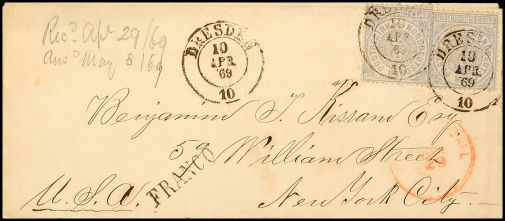 Recd. Apl 29/69
Ansd May 8/69
DRESDEN
10
APR.
69
10
DRESDEN
10
APR.
69
10
DRESDEN
10
APR.
69
10
Benjamin T. Kissam Esq
59 William Street
FRANCO
U.S.A. New York City.